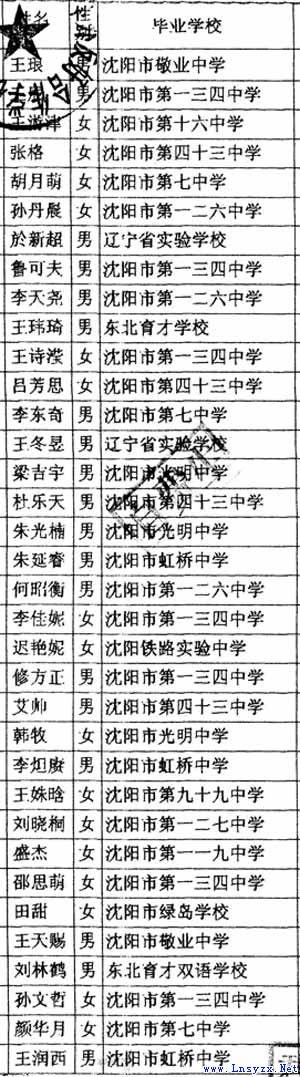 姓名 性别 毕业学校
王琅 男 沈阳市敬业中学
男 沈阳市第一三四中学
女 沈阳市第十六中学
张格 女 沈阳市第四十三中学
胡月萌 女 沈阳市第七中学
孙丹晨 女 沈阳市第一二六中学
於新超 男 辽宁省实验学校
鲁可夫 男 沈阳市第一三四中学
李天尧 男 沈阳市第一二六中学
王玮琦 男 东北育才学校
王诗滢 女 沈阳市第一三四中学
吕芳思 女 沈阳市第四十三中学
李东奇 男 沈阳市第七中学
王冬昱 男 辽宁省实验学校
梁吉宇 男 沈阳市光明中学
杜乐天 男 沈阳市第四十三中学
朱光楠 男 沈阳市光明中学
朱延睿 男 沈阳市虹桥中学
何昭衡 男 沈阳市第一二六中学
李佳妮 女 沈阳市第一三四中学
迟艳妮 女 沈阳铁路实验中学
修方正 男 沈阳市第一三四中学
艾帅 男 沈阳市第四十三中学
韩牧 女 沈阳市光明中学
李炟赓 男 沈阳市虹桥中学
王姝晗 女 沈阳市第九十九中学
刘晓桐 女 沈阳市第一二七中学
盛杰 女 沈阳市第一一九中学
邵思萌 女 沈阳市第一三四中学
田甜 女 沈阳市绿岛学校
王天赐 男 沈阳市敬业中学
刘林鹤 男 东北育才双语学校
孙文哲 女 沈阳市第一三四中学
颜华月 女 沈阳市第七中学
王润西 男 沈阳市虹桥中学
www.Lnsyzx.Net